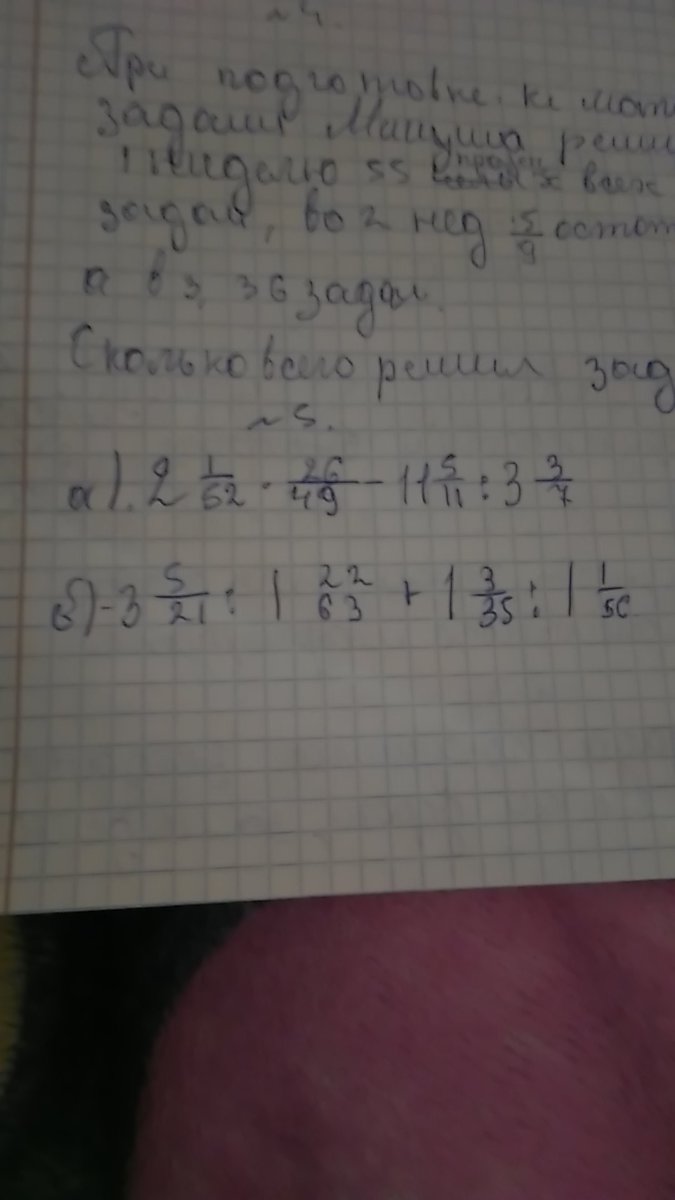 ~4.
При подготовке к мат
задами Мишуша реши
1 ниделю 55 процен х всех
задач, во 2 нед 5/9 остот
а в 3 36 задач.
Сколько всего решил зад
~5.
а). 2 1/52 · 26/49 - 11 5/11 : 3 3/7
б) -3 5/21 : 1 22/63 + 1 3/35 : 1 1/56